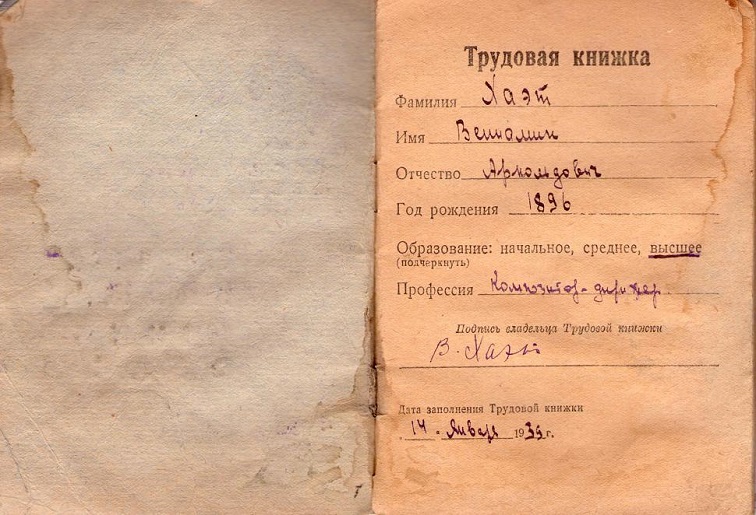 Трудовая книжка
Фамилия Хаэт
Имя Вениамин
Отчество
Год рождения 1896
Образование: начальное, среднее, высшее
(подчеркнуть)
Профессия Композитор-дирижер
Подпись владельца Трудовой книжки
В. Хаэт
Дата заполнения Трудовой книжки
"14" Января 1939 г.